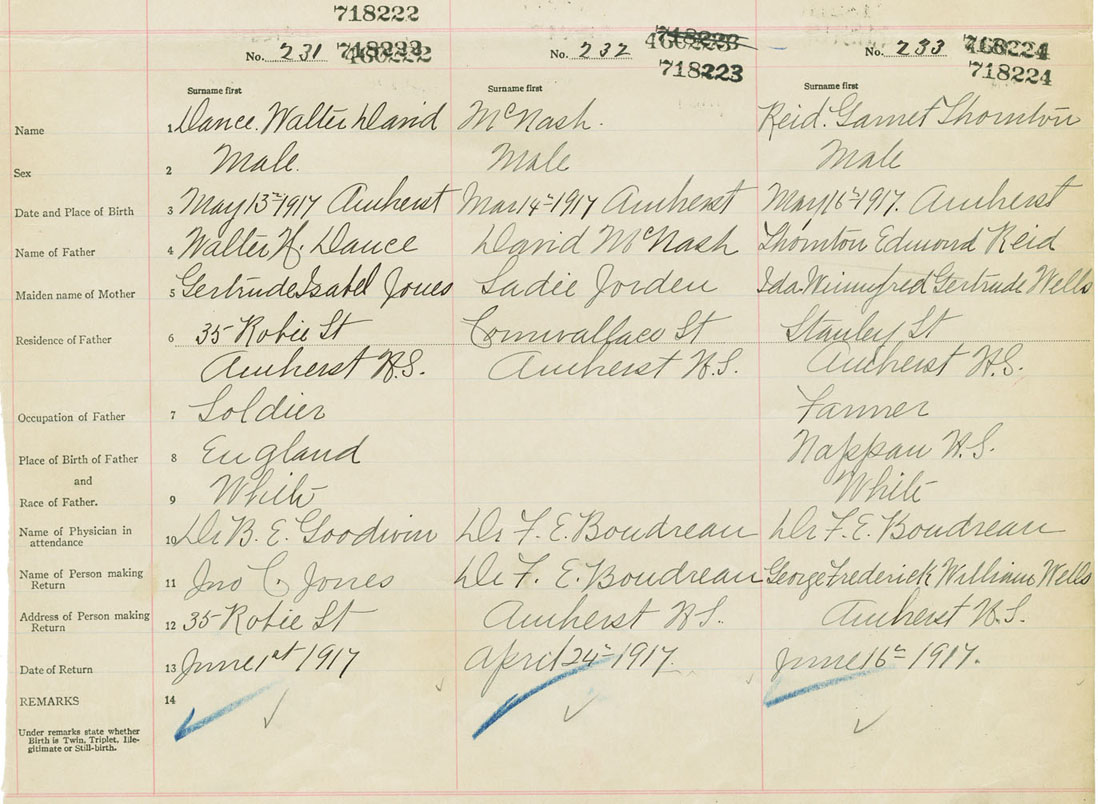 718222
No. 231 718222 No. 232 No. 233
718223 718224
Surname first Surname first Surname first
Name 1 Dance. Walter David McNash. Reid. Garnet Thornton
Sex 2 Male. Male Male
Date and Place of Birth 3 May 13th 1917 Amherst Mar 14th 1917 Amherst May 16th 1917. Amherst
Name of Father 4 Walter H. Dance David McNash Thornton Edmond Reid
Maiden name of Mother 5 Gertrude Isabel Jones Sadie Jorden Ida Winnifred Gertrude Wells
Residence of Father 6 35 Robie St Cornwallace St Stanley St
Amherst N.S. Amherst N.S. Amherst N.S.
Occupation of Father 7 Soldier Farmer
Place of Birth of Father 8 England Nappan N.S.
and
Race of Father. 9 White White
Name of Physician in
attendance 10 Dr B. E. Goodwin Dr F. E. Boudreau Dr F. E. Boudreau
Name of Person making
Return 11 Jno C. Jones Dr F. E. Boudreau George Frederick William Wells
Address of Person making
Return 12 35 Robie St Amherst N.S. Amherst N.S.
Date of Return 13 June 1st 1917 April 24th 1917. June 16th 1917.
REMARKS 14
Under remarks state whether
Birth is Twin, Triplet, Ille-
gitimate or Still-birth.